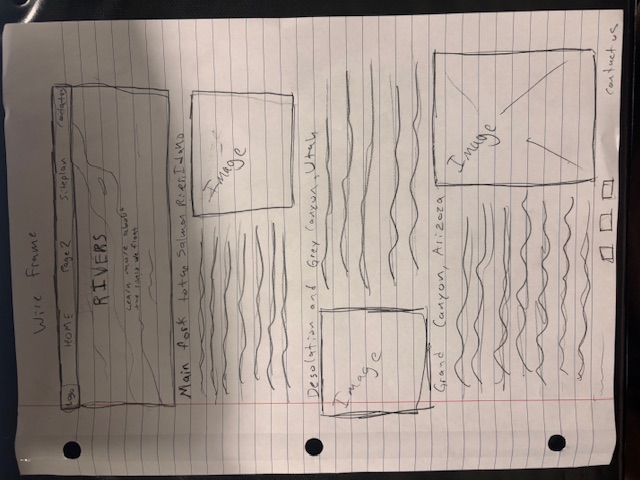 Wire Frame
Logo HOME Page 2 Siteplan
RIVERS
Learn more about
the rivers we float
Main fork to the Salmon River, Idaho
Image
Desolation and Grey Canyon, Utah
Image
Grand Canyon, Arizoza
Image
contact us